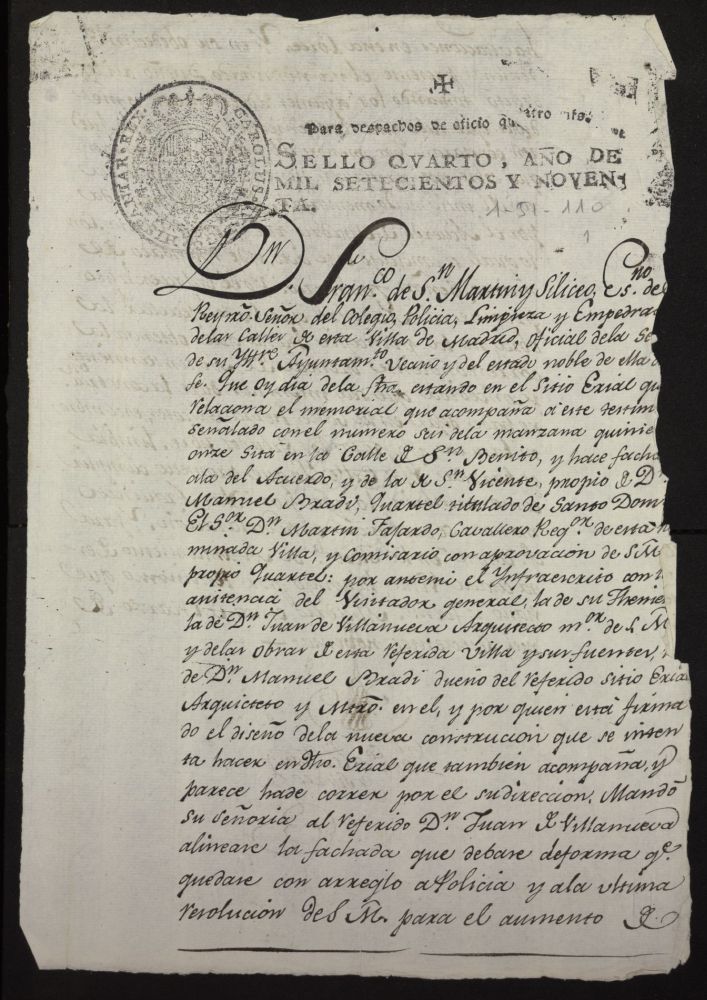 HISPANIAR. REX. CAROLUS
Para despachos de oficio qu atro mrs.
SELLO QVARTO, AÑO DE
MIL SETECIENTOS Y NOVEN-
TA.
1-51-110
1
Dn.
Franco. de Sn. Martin y Siliceo, Esno. de
Rey nro. Señor del Colegio, Policia, Limpieza y Empedra
delas Calles de esta Villa de Madrid, oficial dela Se
de su Yttre. Ayuntamto. Vecino y del estado noble de ella
fe. Que oy dia dela fha. estando en el Sitio Erial qu
relaciona el memorial que acompaña á este testim
señalado con el numero seis dela manzana quinie
onze sita en la Calle de Sn. Benito, y hace facha
ala del Acuerdo, y de la de Sn. Vicente, propio de Dn.
Manuel Bradi, Quartel titulado de Santo Dom
El Sor. Dn. Martin Fajardo, Cavallero Regor. de esta
minada Villa, y Comisario con aprovacion de S. M
propio Quartel: por antemi el Ynfraescrito con
asistencia del Visitador general, la de su Thenie
la de Dn. Juan de Villanueva Arquitecto mor. de S. M
y delas obras de esta referida Villa y sus fuentes,
de Dn. Manuel Bradi dueño del referido sitio Eria
Arquitecto y Mtro. en el, y por quien está firma
do el diseño dela nueva construccion que se inten
ta hacer en dho. Erial que tambien acompaña, y
parece hade correr por el su direccion. Mandó
su señoria al referido Dn. Juan de Villanueva
alinease la fachada que debase deforma qe.
quedase con arreglo a Policia y ala ultima
resolucion de S. M. para el aumento de